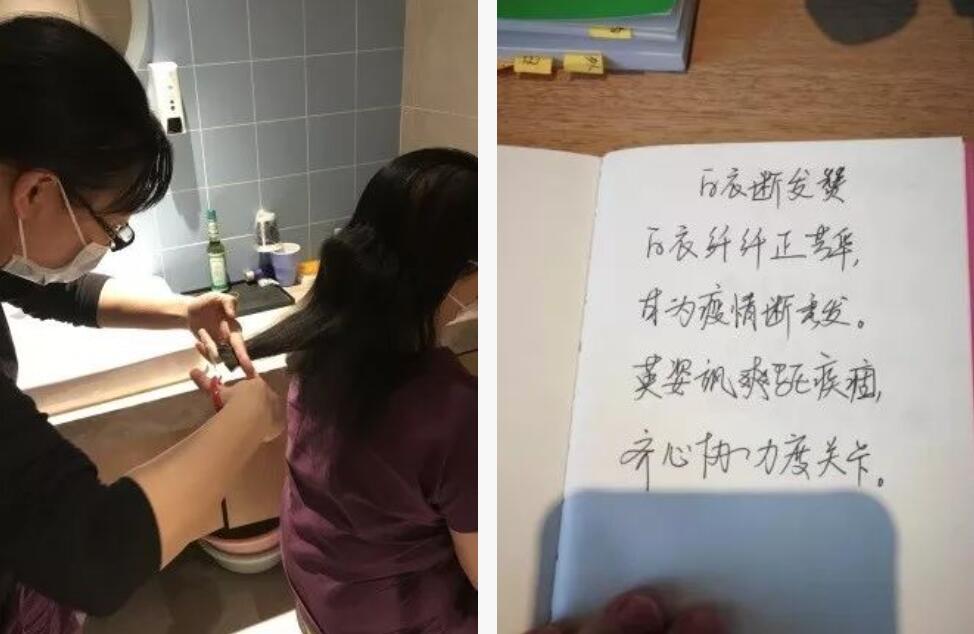 白衣断发赞
白衣纤纤正芳华,
甘为疫情断秀发。
英姿飒爽驱疾痼,
齐心协力度关卡。